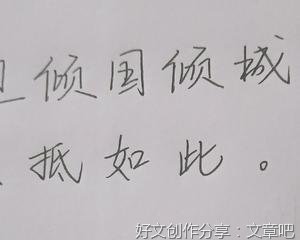 倾国倾城
抵如此。
好文创作分享：文章吧